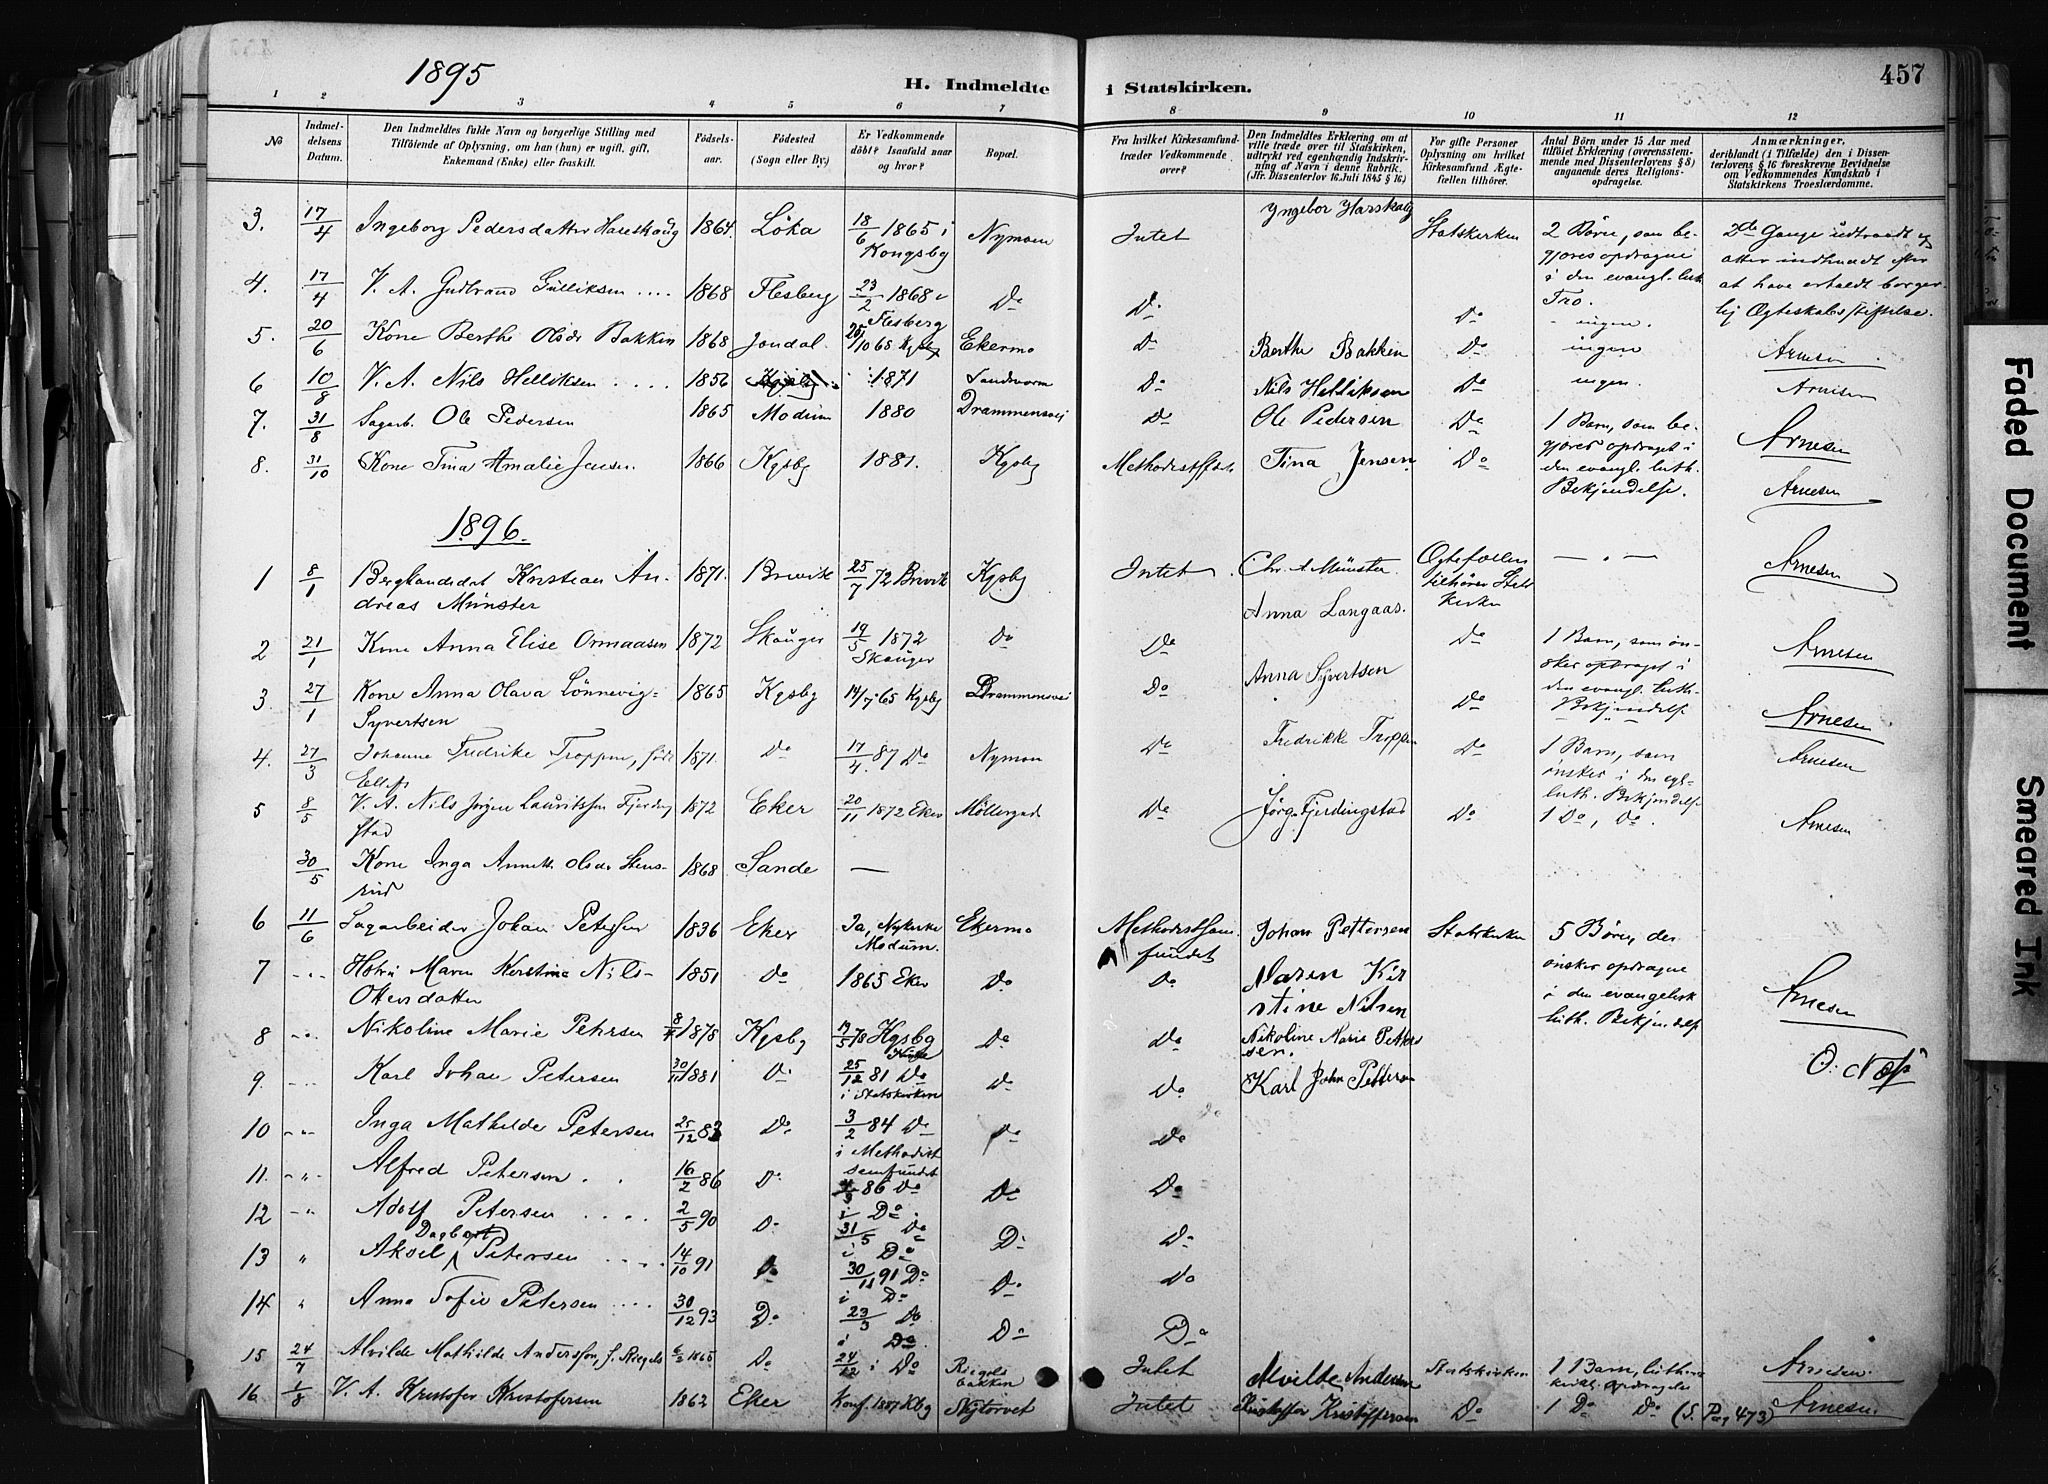 1895
H. Indmeldte i Statskirken.
457
1 2 3 4 5 6 7 8 9 10 11 12
No
Indmel-
delsens
Datum.
Den Indmeldtes fulde Navn og borgerlige Stilling med
Tilföiende af Oplysning, om han (hun) er ugift, gift,
Enkemand (Enke) eller fraskilt.
Födsels-
aar.
Födested
(Sogn eller By.)
Er Vedkommende
döbt? Isaafald naar
og hvor?
Bopæl.
Fra hvilket Kirkesamfund
træder Vedkommende
over?
Den Indmeldtes Erklæring om at
ville træde over til Statskirken,
udtrykt ved egenhændig Indskriv-
ning af Navn i denne Rubrik.
(Jfr. Dissenterlov 16. Juli 1845 § 16)
For gifte Personer
Oplysning om hvilket
Kirkesamfund Ægte-
fællen tilhörer.
Antal Börn under 15 Aar med
tilföiet Erklæring (overensstem-
mende med Dissenterlovens § 8)
angaaende deres Religions-
opdragelse.
Anmærkninger,
deriblandt (i Tilfælde) den i Dissen-
terlovens § 16 foreskrevne Bevidnelse
om Vedkommendes Kundskab i
Statskirkens Troeslærdomme.
3. 17/4 Ingeborg Pedersdatter Haseskaug 1864. Löka 18/6 1865 i Kongsbg Nymoen Intet Yngebor Harskaug Statskirken 2 Börn, som be-
gjøres opdragne
i den evangl. luth.
Tro.
2de Gange udtraadt og
atter indtraadt efter
at have ertaldt borger-
lij Ægteskabsstiftelse.
4. 17/4 V. A. Gudbrand Gulliksen .... 1868 Flesberg 23/2 1868 i Flesberg Do Do Do - ingen.
5. 20/6 Kone Berthe Olsdr Bakken 1868 Jondal 25/10 68 Kgsbg Ekermo Do Berthe Bakkin Do ingen Arnesen
6 10/8 V. A. Nils Helliksen .... 1856 1871 Sandsvorn Do Nils Helliksen Do ingen. Arnesen
7. 31/8 Sagarb. Ole Pedersen 1865 Modum 1880 Drammensvei Do Ole Pedersen Do 1 Barn, som be-
gjøres opdraget i
den evangl. luth.
Bekjendelse.
Arnesen
8. 31/10 Kone Tina Amalie Jensen 1866 Kgsbg 1881. Kgsbg Methodistsst. Tina Jensen. Do Arnesen
1896.
1 8/1 Bergkandidat Kristian An-
dreas Münster 1871. Brevik 25/7 72 Brevik Kgsbg Intet. Chr. A Münster Ægtefællen
tilhörer Stats
kirken — . — Arnesen
2 21/1 Kone Anna Elise Ormaasen 1872 Skauger 19/5 1872 Skauger Do Do Anna Langaas. Do 1 Barn, som øn-
skes opdraget i
den evangl. luth.
Bekjendelse
Arnesen
3. 27/1 Kone Anna Olava Lönnevig-
Syvertsen 1865 Kgsbg 14/7 65 Kgsbg Drammensvei Do Anna Syvertsen Do Arnesen
4. 27/3 Johanne Fredrike Troppen, født
Ellefs 1871. Do 17/4. 87 Do Nymoen Do Fredrikke Troppen Do 1 Barn, som
ønskes i den egl-
luth. Bekjendelse
Arnesen
5 8/5 V. A. Nils Jörgen Lauritssen Fjerding
stad 1872 Eker 20/11 1872 Eker Möllergad Do Jörg. Fjerdingstad Do 1 Do, Do. Arnesen
30/5 Kone Inga Annette Olsdr Stens-
rud 1868 Sande —
6 11/6 Sagarbeider Johan Petersen 1836 Eker Ja, Nykirke
Modum. Ekermo Methodistsam.
fundet Johan Pettersen Statskirken 5 Börn, der
ønskes opdragne
i den evangelisk
luth. Bekjendelse
7 -"- Hstru Maren Kirstine Nils-
Ottersdatter 1851 Do 1865 Eker Do Do Maren Kir
stine Nilsen Arnesen
8 -"- Nikoline Marie Petersen 8/4 1878 Kgsbg 19/5 78 Kgsbg Kirke Do Do Nikoline Marie Petter
sen.
9. -"- Karl Johan Petersen 30/11 1881 Do 25/12 81 Do
i Statskirken Do Do Karl John Pettersen O. Næss
10 -"- Inga Mathilde Petersen 25/12 83 Do 3/2 84 Do
i Methodist
samfundet Do Do
11. -"- Alfred Petersen . . 16/2 86 Do 86 Do
i Do. Do Do
12 -"- Adolf Petersen .... 2/5 90 Do 31/5 Do
i Do Do Do
13 " Aksel Dagbart Petersen .... 14/10 91 Do 30/11 91 Do
i Do Do Do
14 " Anna Sofie Petersen .... 30/12 93 Do 23/3 Do
i Do Do Do
15 24/7 Alvilde Mathilde Anderssen, f. Riegels 6/2 1865 Do 24/12 i Do Riegels
bakken Intet Alvilde Andersen Statskirken 1 Barn, luthersk
kirkl. opdragelse Arnesen.
16. 1/8 V. A. Kristofer Kristofersen 1862 Eker Konf. 1887 Kbg Nytorvet Intet Kristoffer Kristoffersen Do 1 Do Do (S. Pag 473) Arnesen
Faded Document
Smeared Ink